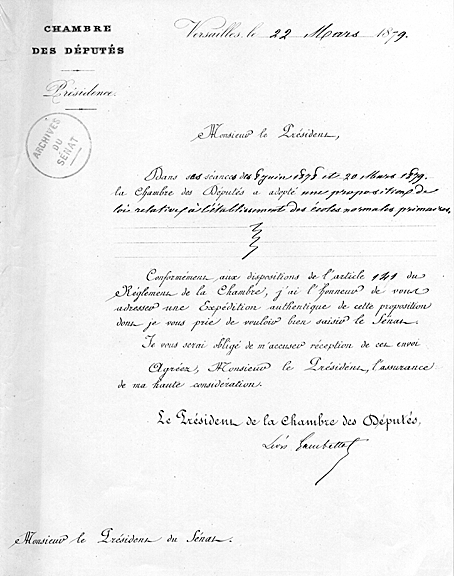 CHAMBRE
DES DÉPUTÉS
Présidence.
ARCHIVES DU SÉNAT
Versailles, le 22 Mars 1879.
Monsieur le Président,
Dans ses séances des 8 juin 1878 et 20 Mars 1879.
la Chambre des Députés a adopté une proposition de
loi relative à l'établissement des écoles normales primaires.
Conformément aux dispositions de l'article 141 du
Règlement de la Chambre, j'ai l'honneur de vous
adresser une Expédition authentique de cette proposition
dont je vous prie de vouloir bien saisir le Sénat.
Je vous serai obligé de m'accuser réception de cet envoi
Agréez, Monsieur le Président, l'assurance
de ma haute considération.
Le Président de la Chambre des Députés,
Léon Gambetta
Monsieur le Président du Sénat.